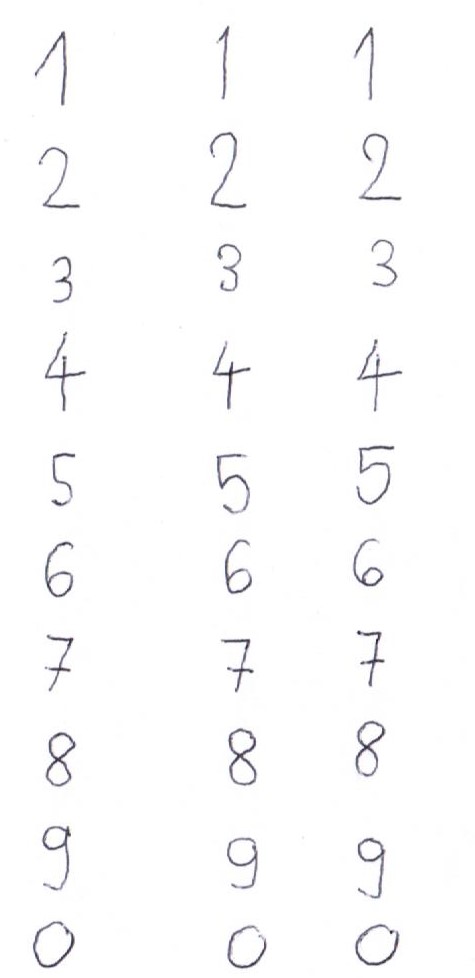 1 1 1
2 2 2
3 3 3
4 4 4
5 5 5
6 6 6
7 7 7
8 8 8
9 9 9
0 0 0